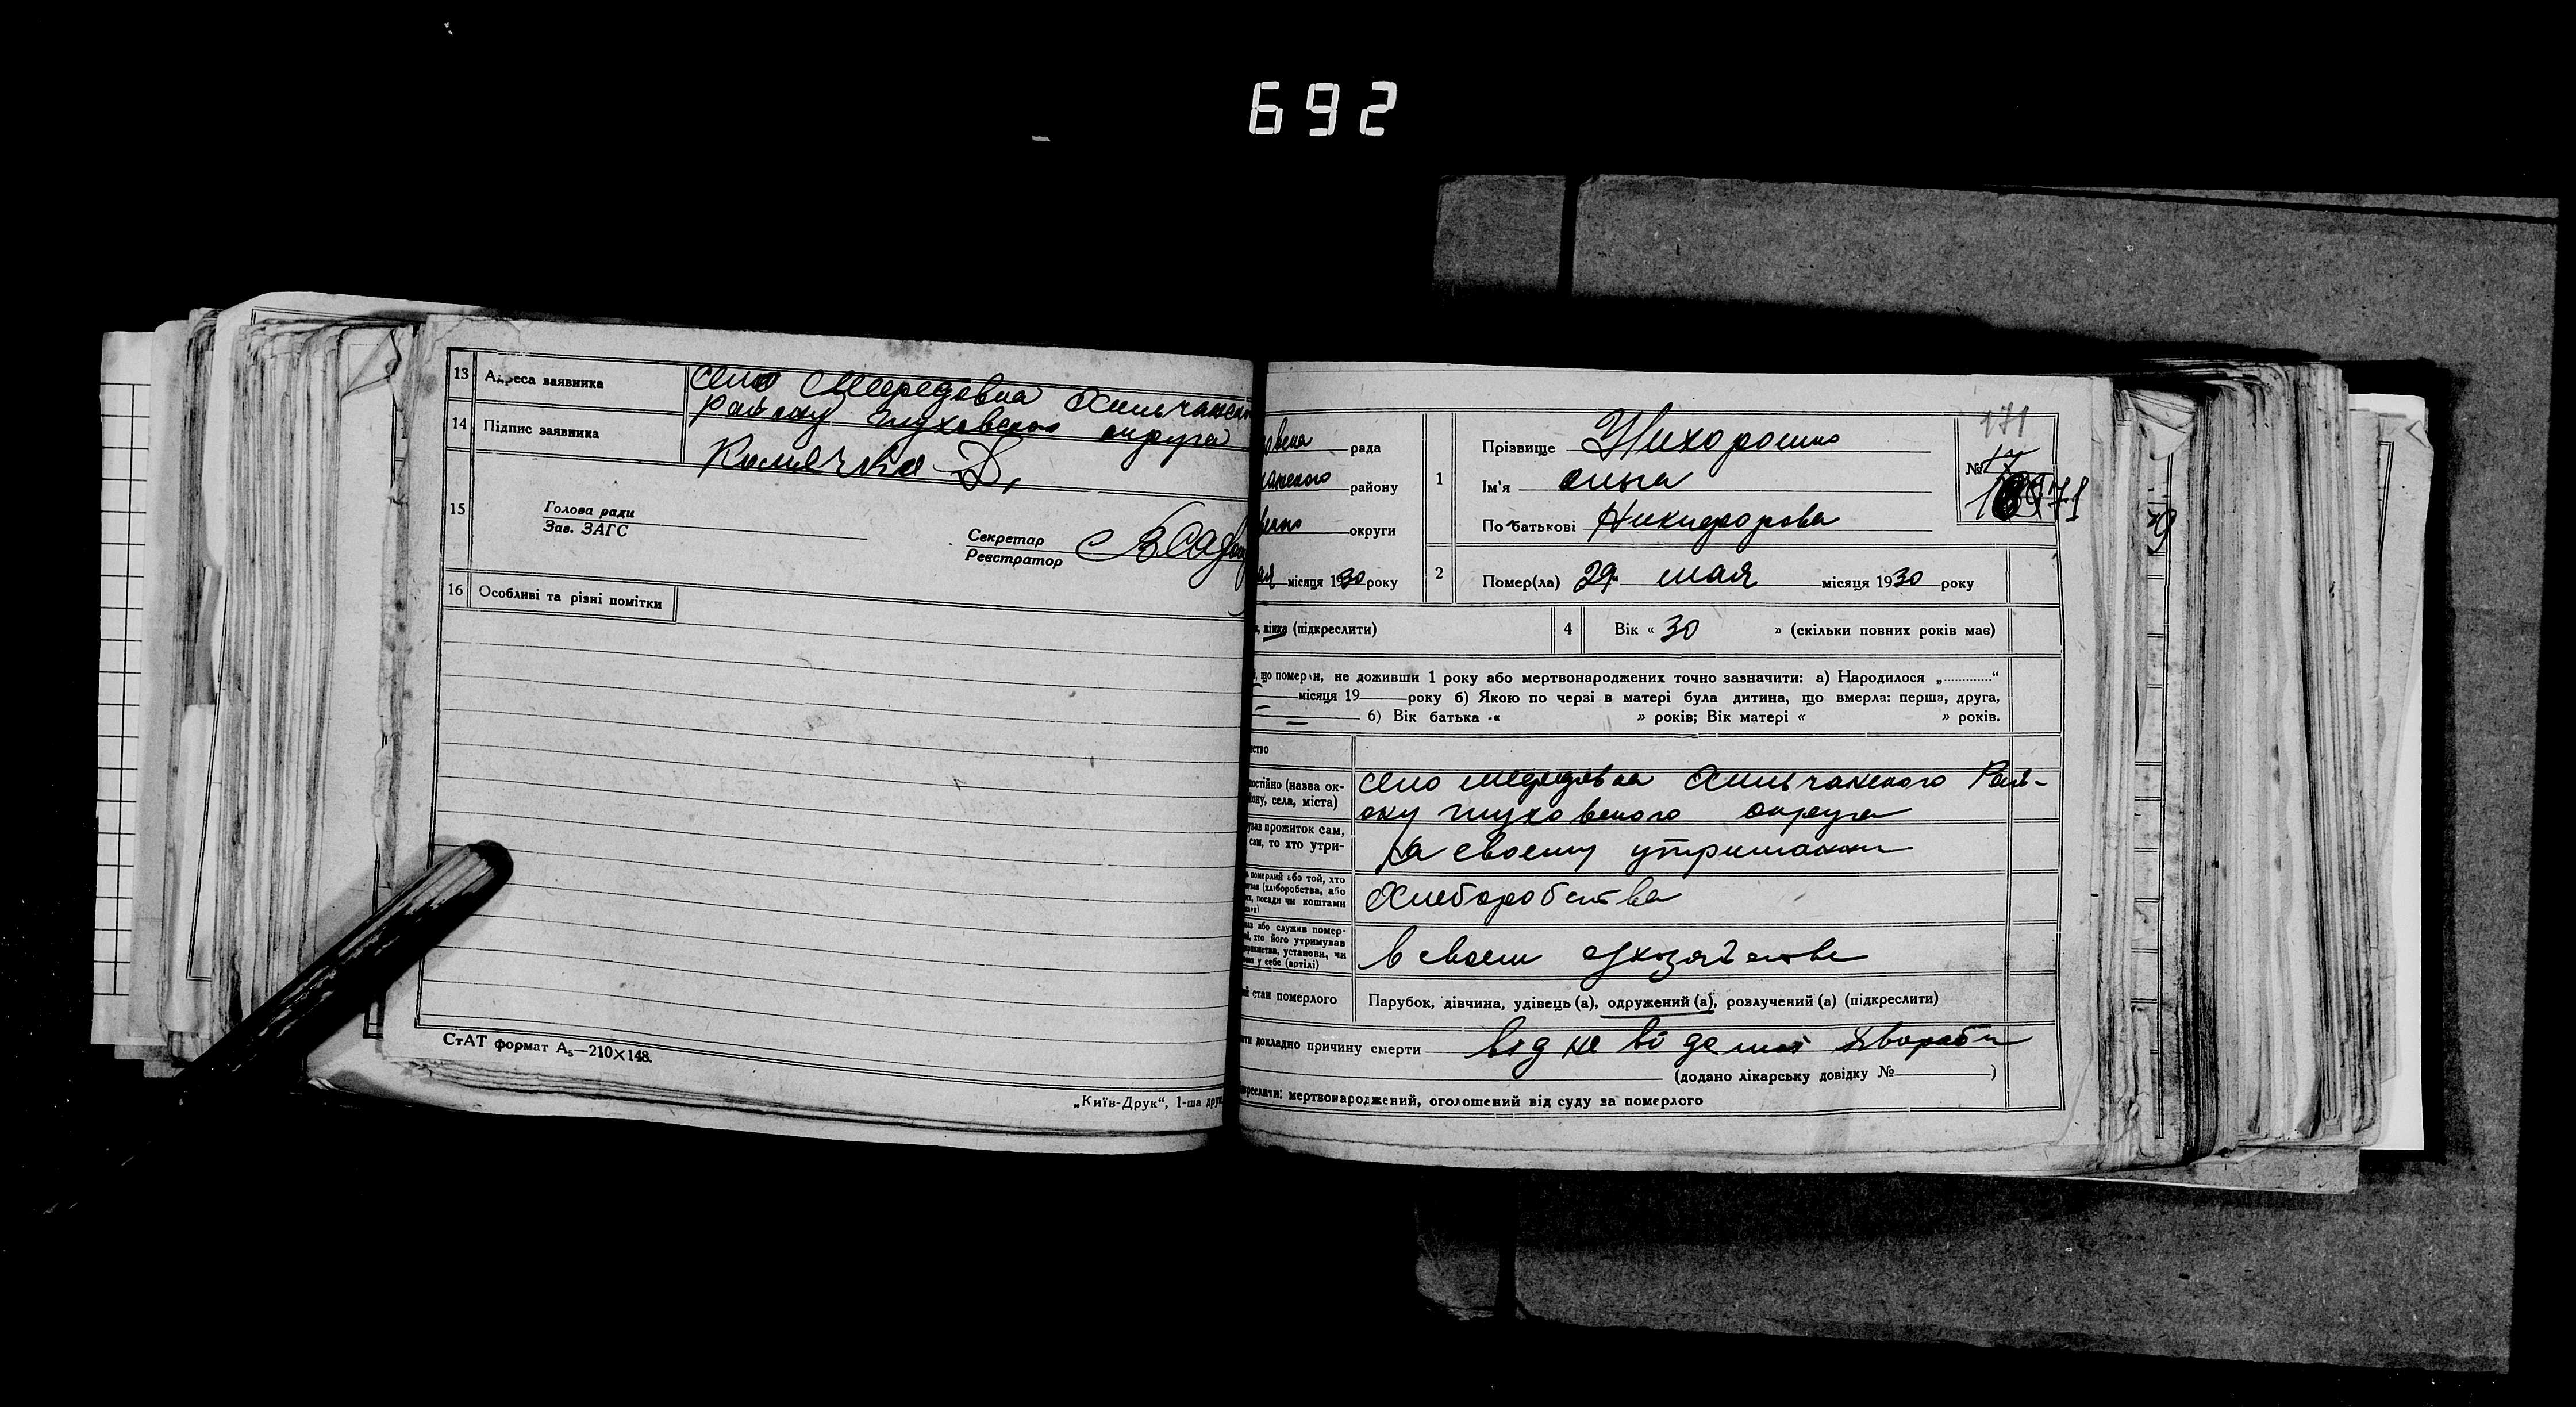 692
13 Адреса заявника
село Середовка Хильчанск
району Глуховского округа
14 Підпис заявника
Д,
15
Голова ради
Зав. ЗАГС
Секретар
Реєстратор
16 Особливі та різні помітки
СтАТ формат А₅—210×148.
„Київ-Друк“, 1-ша друк
рада
району
округи
мая місяця 1930 року
1 Прізвище
Ім'я
По батькові Никифорова
171
№ 17
171
2 Помер(ла) 29 мая місяця 1930 року
, жінка (підкреслити)
4 Вік « 30 » (скільки повних років має)
, що померли, не доживши 1 року або мертвонароджених точно зазначити: а) Народилося „ “
місяця 19 року б) Якою по черзі в матері була дитина, що вмерла: перша, друга,
6) Вік батька « » років; Вік матері « » років.
нство
постійно (назва ок-
йону, села, міста)
село Хильчанского Рай-
ону глуховского округа
ував прожиток сам,
сам, то хто утри-
На своему утриманни
померлий або той, хто
ував (хліборобства, або
посади чи коштами
Хлеборобства
або служив помер-
хто його утримував
установи, чи
у себе (артілі)
в своем
стан померлого
Парубок, дівчина, удівець (а), одружений (а), розлучений (а) (підкреслити)
докладно причину смерти від не ві домої хвороби
(додано лікарську довідку № )
дкреслити: мертвонароджений, оголошений від суду за померлого